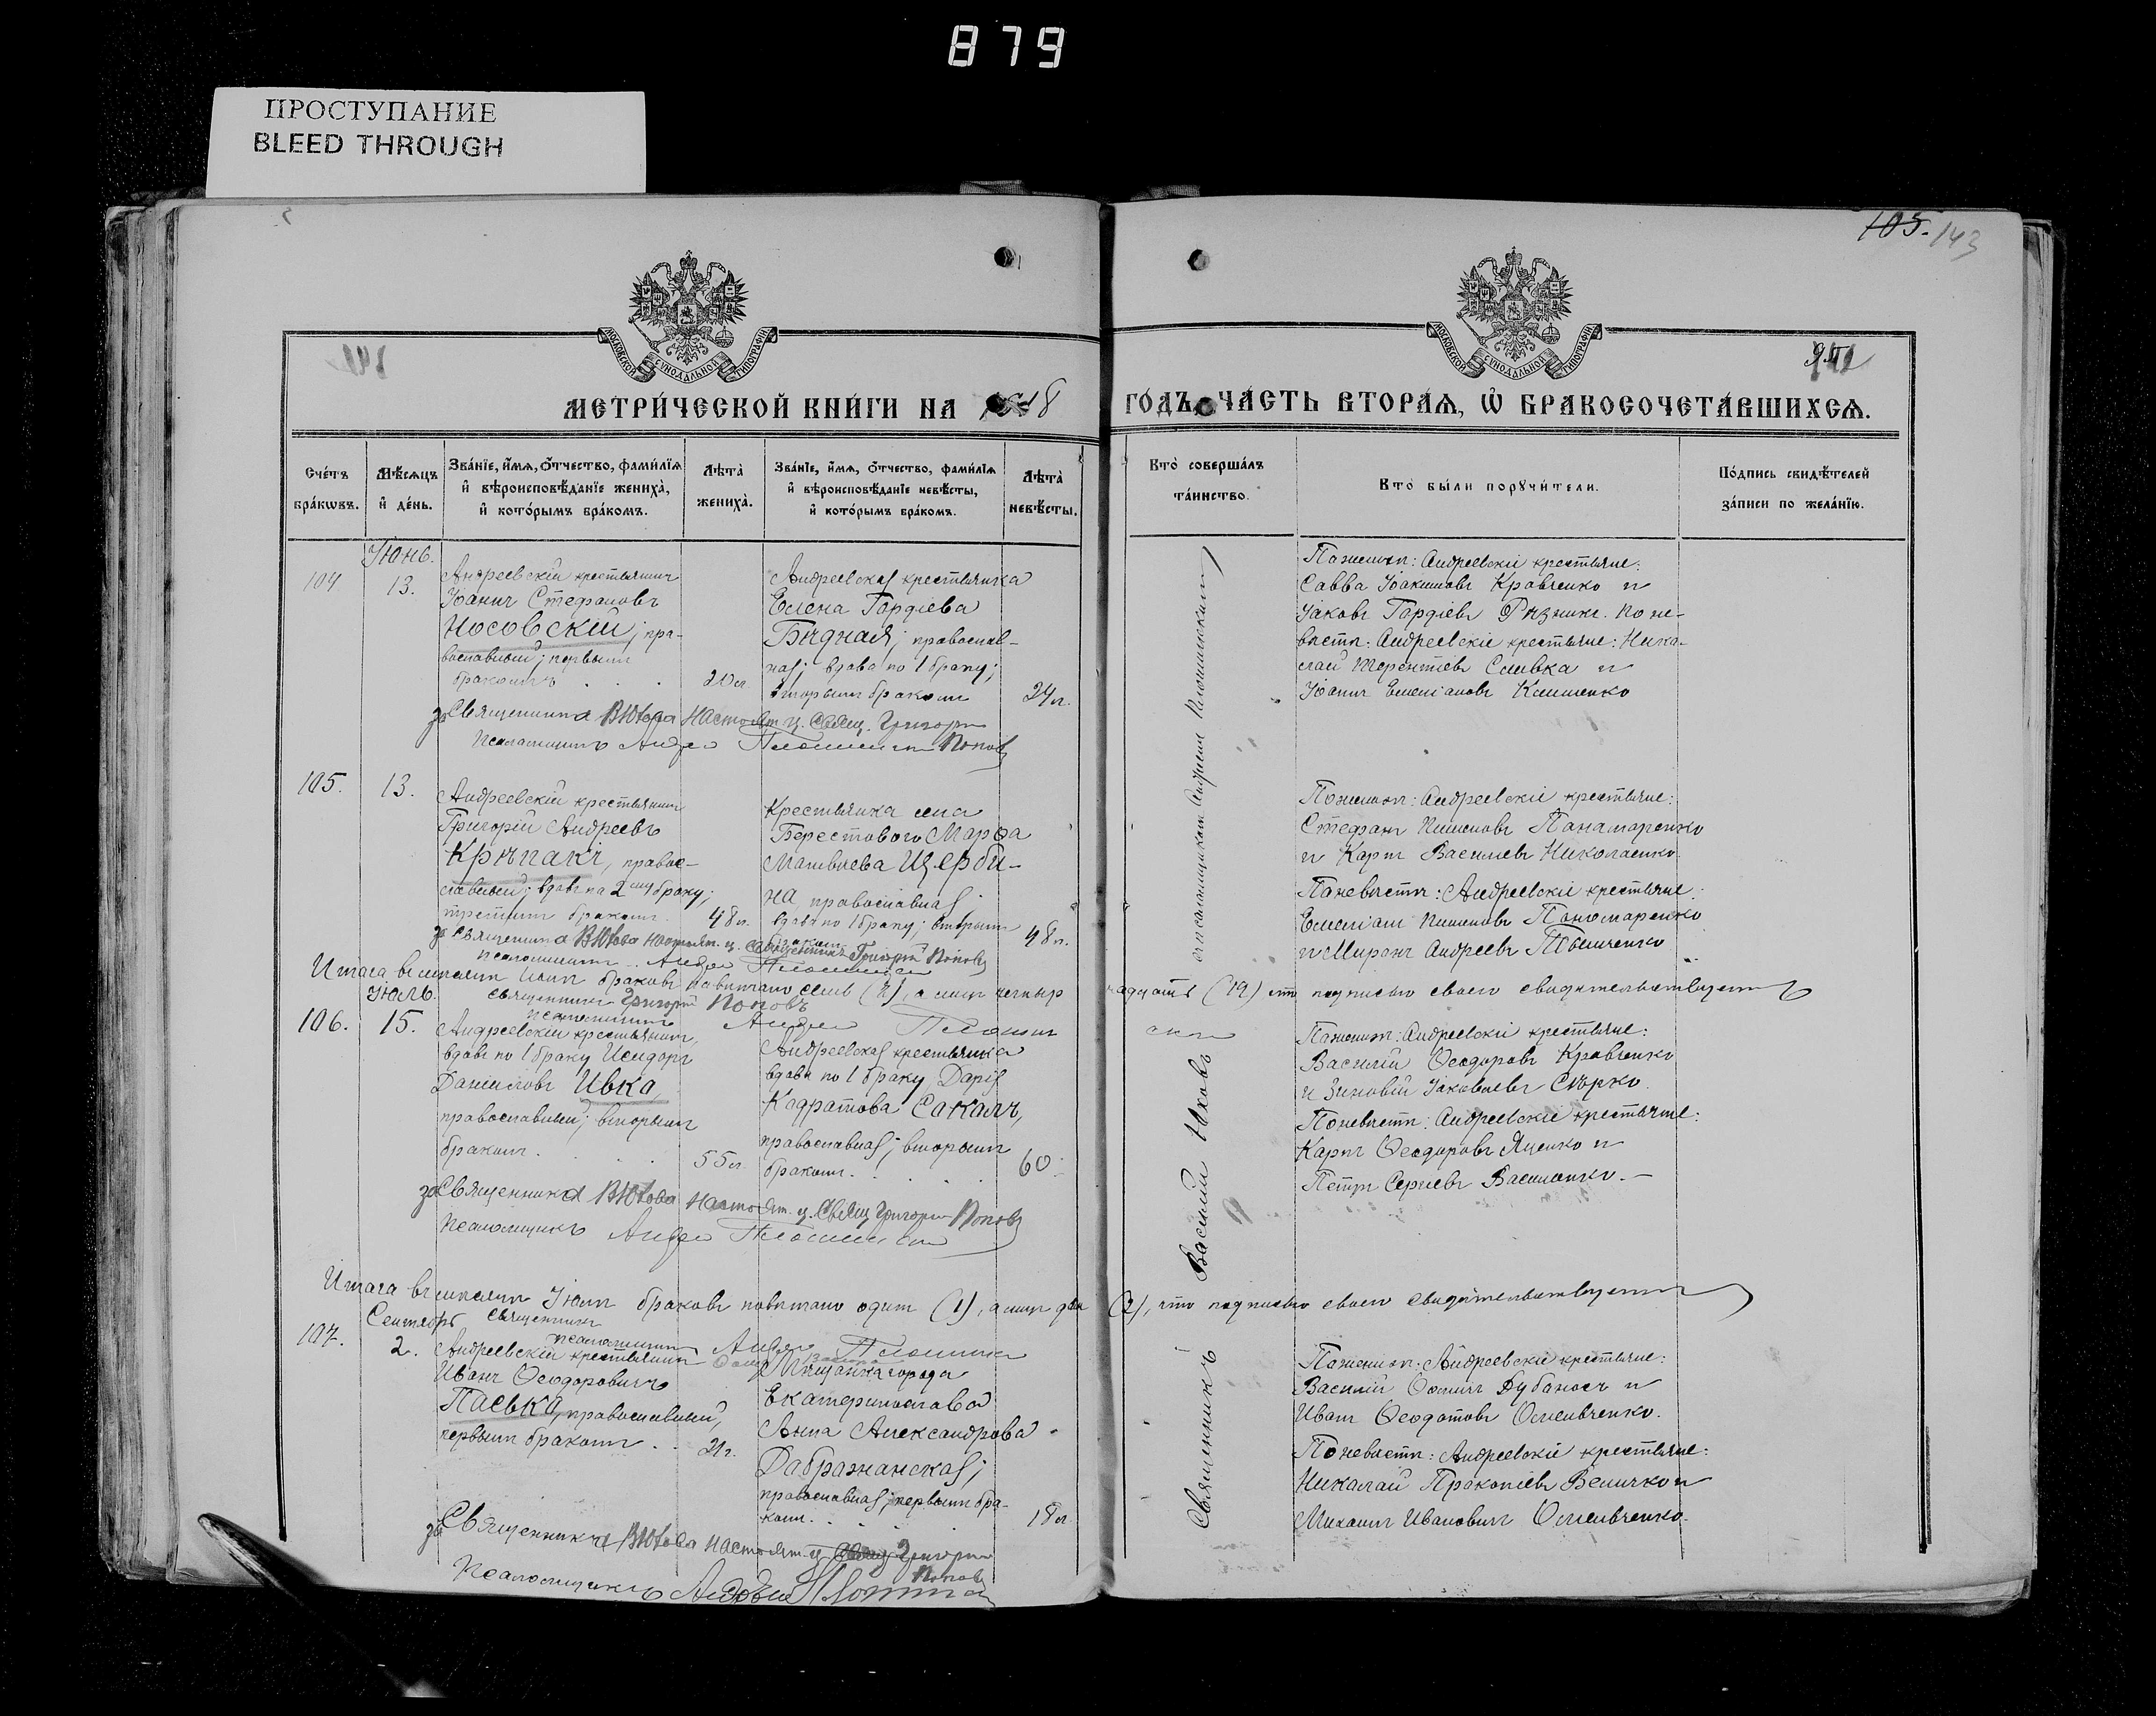 879
ПРОСТУПАНИЕ
BLEED THROUGH
105. 143
141
МОСКОВСКОЙ СѴНОДАЛЬНОЙ ТИПОГРАФІИ
МОСКОВСКОЙ СѴНОДАЛЬНОЙ ТИПОГРАФІИ
МЕТРИ́ЧЕСКОЙ КНИ́ГИ НА 18 ГО́ДЪ, ЧА́СТЬ ВТОРА́Я, Ѡ БРАКОСОЧЕТА́ВШИХСЯ.
Сче́тъ бра́кѡвъ.
Мѣ́сяцъ и҆ де́нь.
Зва́нїе, и҆́мя, ѻ҆́тчество, фами́лїя и҆ вѣроисповѣ́данїе жениха̀, и҆ кото́рымъ бра́комъ.
Лѣта̀ жениха̀.
Зва́нїе, и҆́мя, ѻ҆́тчество, фами́лїя и҆ вѣроисповѣ́данїе невѣ́сты, и҆ кото́рымъ бра́комъ.
Лѣта̀ невѣ́сты.
Кто̀ соверша́лъ та́инство.
Кто̀ бы́ли порꙋчи́тели.
По́дпись свидѣ́телей за́писи по жела́нїю.
Іюнь.
104
13.
Андреевскій крестьянинъ
Іоаннъ Стефановъ
Носовскій; пра-
вославный; первымъ
бракомъ
20 л.
Андреевская крестьянка
Елена Гордіева
Бѣдная; православ-
ная; вдова по 1 браку;
вторымъ бракомъ
24 л.
Андреевскіе крестьяне:
Савва Іоакимовъ Кравченко и
Іаковъ Гордіевъ Рѣзникъ. По не-
вѣстѣ: Андреевскіе крестьяне: Нико-
лай Терентіевъ Сливка и
Іоаннъ Емеліановъ Клименко
за Священника В. Юхова Настоят. ц. Свящ. Григорій Поповъ
Псаломщикъ Андрей
105.
13.
Андреевскій крестьянинъ
Григорій Андреевъ
Крѣпакъ, право-
славный; вдовъ по 2му браку;
третьимъ бракомъ
48 л.
Крестьянка села
Берестового Марфа
Матвѣева Щерби-
на православная
вдова по 1 браку; вторымъ
бракомъ
48 л.
Андреевскіе крестьяне:
Стефанъ Пименовъ Панамаренко
и Карпъ Василіевъ Николаенко.
По невѣстѣ: Андреевскіе крестьяне:
Емеліанъ Пименовъ Пономаренко
и Миронъ Андреевъ
за Священника В. Юхова Настоят. ц. Священникъ Григорій Поповъ
Псаломщикъ Андрей
Итого въ мѣсяцѣ Іюнѣ браковъ повѣнчано семь (7), а лицъ четыр надцать (14) что подписью своею свидѣтельствуемъ
Священникъ Григорій Поповъ
Псаломщикъ Андрей
Іюль.
106.
15.
Андреевскій крестьянинъ,
вдовъ по 1 браку Исидоръ
Даніиловъ Ивка,
православный; вторымъ
бракомъ
55 л.
Андреевская крестьянка
вдова по 1 браку, Дарія
Кодратова Сокалъ,
православная; вторымъ
бракомъ.
60
Андреевскіе крестьяне:
Василій Ѳеодоровъ Кравченко
и Зиновій Іаковлевъ Сѣрко.
По невѣстѣ: Андреевскіе крестьяне:
Карпъ Ѳеодоровъ Яценко и
Петръ Сергіевъ Василенко.
за Священника В. Юхова Настоят. ц. Свящ. Григорій Поповъ
Псаломщикъ Андрей
Итого въ мѣсяцѣ Іюлѣ браковъ повѣнчано одинъ (1), а лицъ два (2), что подписью своею свидѣтельствуемъ
Священникъ
Псаломщикъ Андрей
Сентябрь
107.
2.
Андреевскій крестьянинъ
Иванъ Ѳеодоровичъ
Паська, православный,
первымъ бракомъ
21 г.
Мѣщанка города
Екатеринослава
Анна Александрова
Дображанская;
православная; первымъ бра-
комъ.
18 л.
Андреевскіе крестьяне:
Василій Ѳомичъ Дубоносъ и
Иванъ Ѳеодотовъ
По невѣстѣ: Андреевскіе крестьяне:
Николай Прокопіевъ Величко и
Михаилъ Ивановичъ
за Священника В. Юхова Настоят. ц. Свящ. Григорій Поповъ
Псаломщикъ Андрей
Священникъ Василій Юховъ съ псаломщикомъ Андреемъ